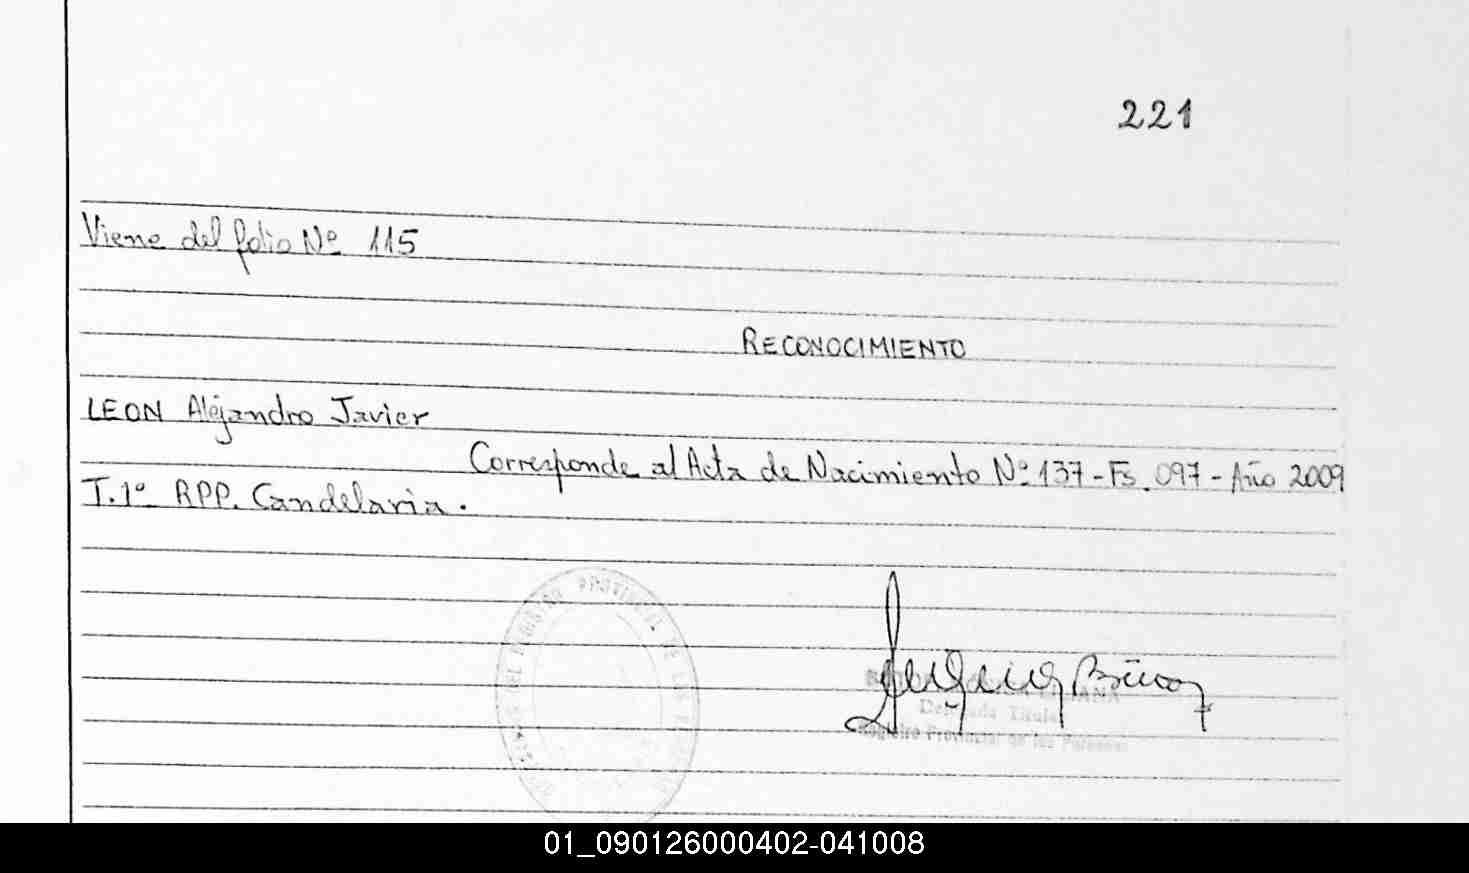 221
Viene del folio Nº 115
RECONOCIMIENTO
LEON Alejandro Javier
Corresponde al Acta de Nacimiento Nº 137 - Fs. 097 - Año 2009
T. 1º RPP. Candelaria.
DEL REGISTRO PROVINCIAL DE LAS
Delegada Titular
Registro Provincial de las Personas
01_090126000402-041008